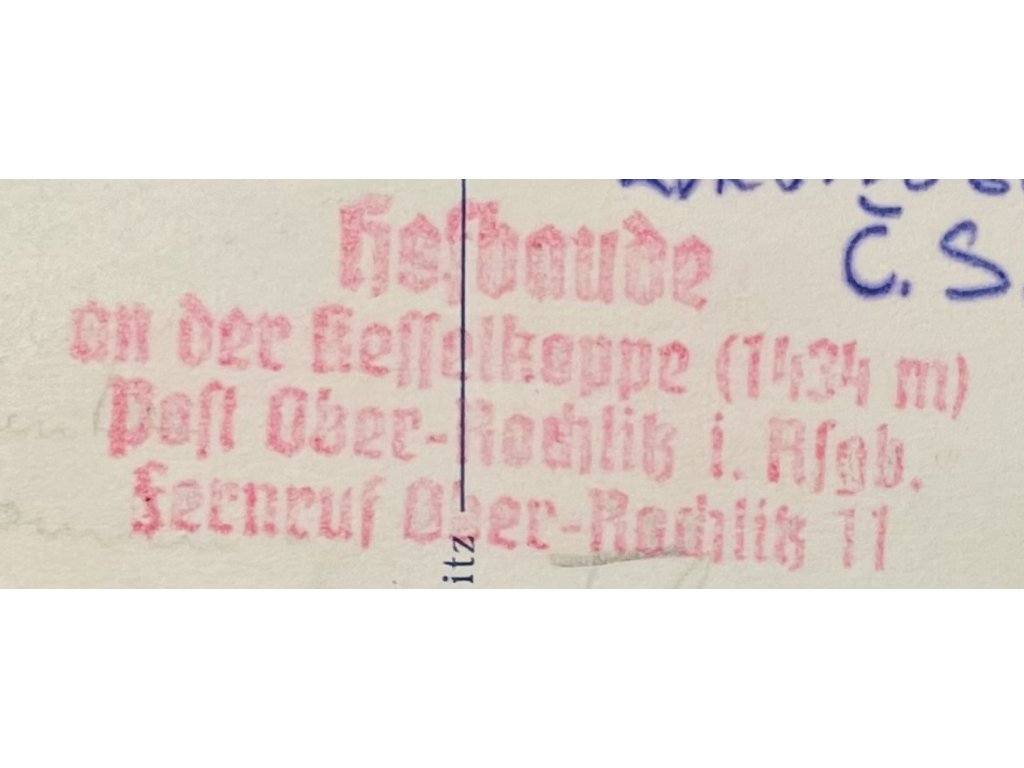 Č. S.
Hofbaude
an der Kesselkoppe (1434 m)
Post Ober-Rochlitz i. Rsgb.
Fernruf Ober-Rochlitz 11
itz